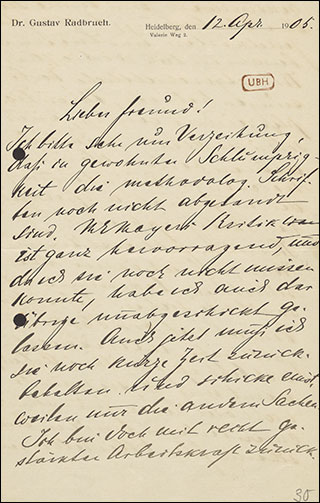 Dr. Gustav Radbruch.
Heidelberg, den 12. Apr. 1905.
Valerie Weg 2.
UBH
Lieber Freund!
Ich bitte sehr um Verzeihung,
daß in gewohnter Schlumprig-
keit die methodolog. Schrif-
ten noch nicht abgesandt
sind. M. E. Mayers Kritik
ist ganz hervorragend, und
da ich sie noch nicht missen
konnte, habe ich auch das
übrige unabgeschickt ge-
lassen. Auch jetzt muß ich
sie noch kurze Zeit zurück-
behalten und schicke einst-
weilen nur die andern Sachen.
Ich bin doch mit recht ge-
stärkter Arbeitskraft zurück-
30